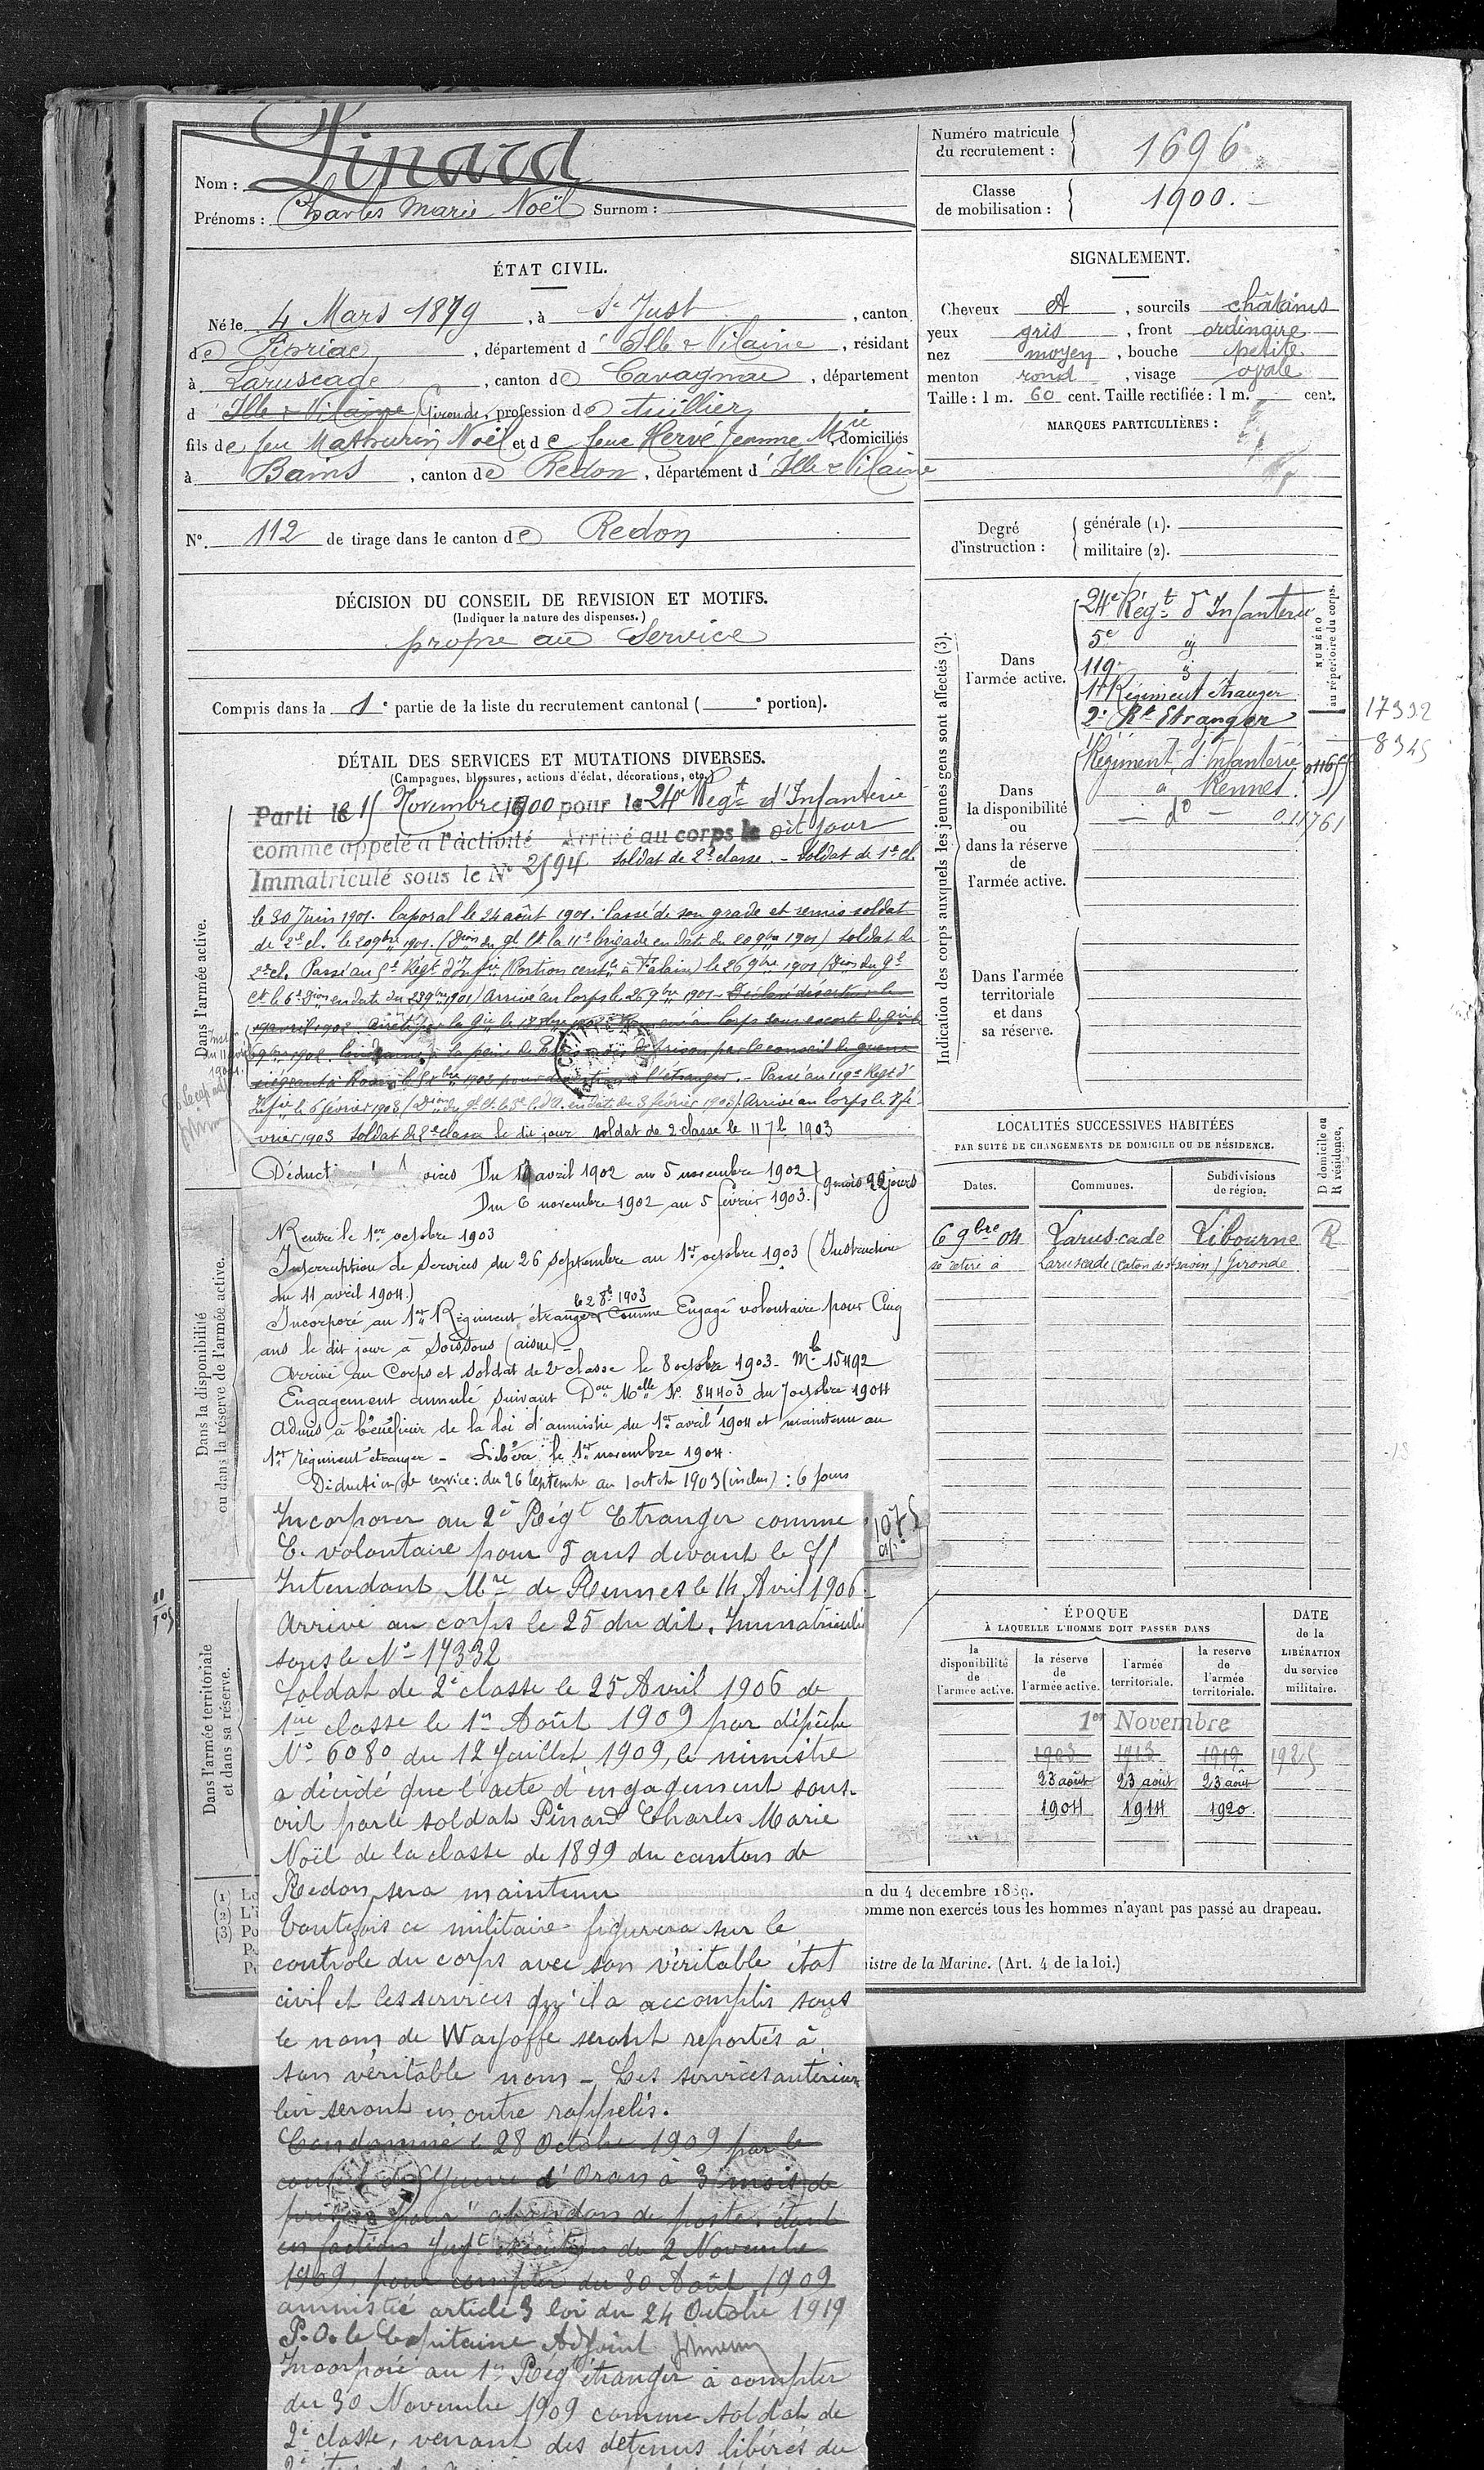 Nom : Pinard
Prénoms : Charles Marie Noël Surnom :
Numéro matricule du recrutement : 1696
Classe de mobilisation : 1900.
ÉTAT CIVIL.
Né le 4 Mars 1879, à St Just, canton
de Pipriac, département d'Ille & Vilaine, résidant
à Laruscade, canton de Cavagnac, département
d Ille & Vilaine Gironde, profession de tuillier
fils de feu Mathurin Noël et de feue Hervé Jeanne Mie domiciliés
à Bains, canton de Redon, département d'Ille & Vilaine
No. 112 de tirage dans le canton de Redon
DÉCISION DU CONSEIL DE REVISION ET MOTIFS.
(Indiquer la nature des dispenses.)
propre au Service
Compris dans la 1e partie de la liste du recrutement cantonal ( e portion).
SIGNALEMENT.
Cheveux et, sourcils châtains
yeux gris, front ordinaire
nez moyen, bouche petite
menton rond, visage ovale
Taille : 1 m. 60 cent. Taille rectifiée : 1 m. cent.
MARQUES PARTICULIÈRES :
Degré d'instruction : générale (1). militaire (2).
DÉTAIL DES SERVICES ET MUTATIONS DIVERSES.
(Campagnes, blessures, actions d'éclat, décorations, etc.)
Dans l'armée active.
Parti le 15 Novembre 1900 pour le 24e Régt d'Infanterie
comme appelé à l'activité Arrivé au corps le dit jour
Immatriculé sous le No 2594 soldat de 2e classe. - Soldat de 1e cl.
le 30 Juin 1901. Caporal le 24 août 1901. Cassé de son grade et remis soldat
de 2e cl. le 20 9bre 1901. (Don du gl Ct la 11e brigade en date du 20 9bre 1901) soldat de
2e cl. Passé au 5e Régt d'Infie (Portion centle à Falaise) le 26 9bre 1901 (Don du gl
Ct le 6e Don en date du 22 9bre 1901) Arrivé au Corps le 26 9bre 1901 - Déclaré déserteur le
19 avril 1902. Arrêté par la Gie le 1902 au corps sous escorte de Gie le
6 9bre 1902. Condamné à la peine de mois de prison par le conseil de guerre
siégeant à Rouen le 1902 pour désertion à l'étranger. - Passé au 119e Régt d'
Infie le 6 février 1903 (Don du gl Ct le 3e C. d'A. en date du 3 février 1903). Arrivé au corps le 7 fé
vrier 1903 soldat de 2e classe le dit jour soldat de 2 classe le 11 7b 1903
Du avril 1902 au 5 novembre 1902
Du 6 novembre 1902 au 5 février 1903. 9 mois jours
Rentre le 1er octobre 1903
Interruption de Services du 26 septembre au 1er octobre 1903 (Instruction
du 11 avril 1904.)
Incorporé au 1er Régiment étranger le 2 8bre 1903 comme Engagé volontaire pour Cinq
ans le dit jour à Soissons (aisne) -
Arrivé au Corps et Soldat de 2e classe le 8 octobre 1903. Mle 15492
Engagement annulé suivant Don Melle No 84403 du 7 octobre 1904
Admis à bénéficier de la loi d'amnistie du 1er avril 1904 et maintenu au
1er régiment étranger - Libéré le 1er novembre 1904.
Déduction de service : du 26 septembre au 1 octobre 1903 (inclus) : 6 jours
Dans la disponibilité ou dans la réserve de l'armée active.
Dans l'armée territoriale et dans sa réserve.
Incorporer au 2e Régt Etranger comme
E. volontaire pour 5 ans devant le S/
Intendant Mre de Rennes le 14 Avril 1906.
Arrivé au corps le 25 du dit. Immatriculé
sous le No 17332
Soldat de 2e classe le 25 Avril 1906 de
1ere classe le 1er Août 1909 par dépêche
No 6080 du 12 Juillet 1909, le ministre
a décidé que l'acte d'engagement sous-
crit par le soldat Pinard Charles Marie
Noël de la classe de 1899 du canton de
Redon, sera maintenu
Toutefois ce militaire figurera sur le
contrôle du corps avec son véritable état
civil et les services qu'il a accomplis sous
le nom de Wayoffe seront reportés à
son véritable nom - Les services antérieurs
lui seront en outre rappelés.
Condamné le 28 Octobre 1909 par le
conseil de Guerre d'Oran à 3 mois de
prison pour "abandon de poste étant
en faction Jugt exécutoire du 2 Novembre
1909, pour compter du 30 Août 1909
amnistié article 3 loi du 24 Octobre 1919
P.O. le Capitaine Adjoint
Incorporé au 1er Régt étranger à compter
du 30 Novembre 1909 comme soldat de
2e classe, venant des détenus libérés du
Indication des corps auxquels les jeunes gens sont affectés (3).
NUMÉRO au répertoire du corps.
Dans l'armée active.
24e Régt d'Infanterie
5e
119e
1er Régiment étranger
2e Rt Etranger
17332
8345
Dans la disponibilité ou dans la réserve de l'armée active.
Régiment d'Infanterie
à Rennes.
- do - 011761
Dans l'armée territoriale et dans sa réserve.
LOCALITÉS SUCCESSIVES HABITÉES
PAR SUITE DE CHANGEMENTS DE DOMICILE OU DE RÉSIDENCE.
Dates. Communes. Subdivisions de région. D domicile ou R résidence,
6 9bre 04 Laruscade Libourne R
se retire à Laruscade (Caton de St Savin) Gironde
1075
ÉPOQUE
À LAQUELLE L'HOMME DOIT PASSER DANS
la disponibilité de l'armée active.
la réserve de l'armée active.
l'armée territoriale.
la reserve de l'armée territoriale.
DATE de la LIBÉRATION du service militaire.
1er Novembre
1903 1913 1919 1925
23 août 23 août 23 août
1904 1914 1920.
(1) Le
(2) L'i
(3) Po
n du 4 décembre 1889.
omme non exercés tous les hommes n'ayant pas passé au drapeau.
istre de la Marine. (Art. 4 de la loi.)